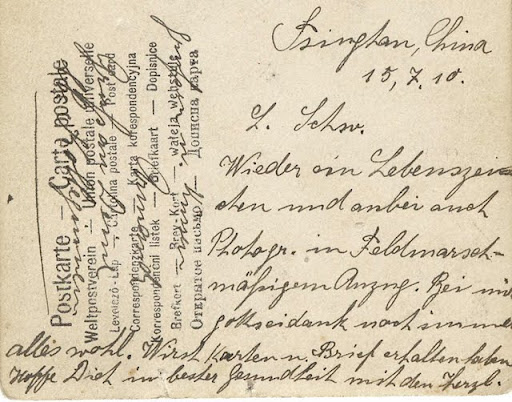 Postkarte — Carte postale
Weltpostverein — Union postale universelle
Levelező-Lap — Cartolina postale — Post card
Correspondenzkarte — Karta korespondencyjna
Korrespondenční listek — Briefkaart — Dopisnice
Brefkort — Brev-Kort —
Открытое письмо — Дописна карта
Tsingtau, China
15, 7. 10.
L. Schw.
Wieder ein Lebenszei-
chen und anbei auch
Photogr. in Feldmarsch-
mäßigem Anzug. Bei mir
gottseidank noch immer
alles wohl. Wirst Karten u. Brief erhalten haben
Hoffe Dich in bester Gesundheit mit den herzl.